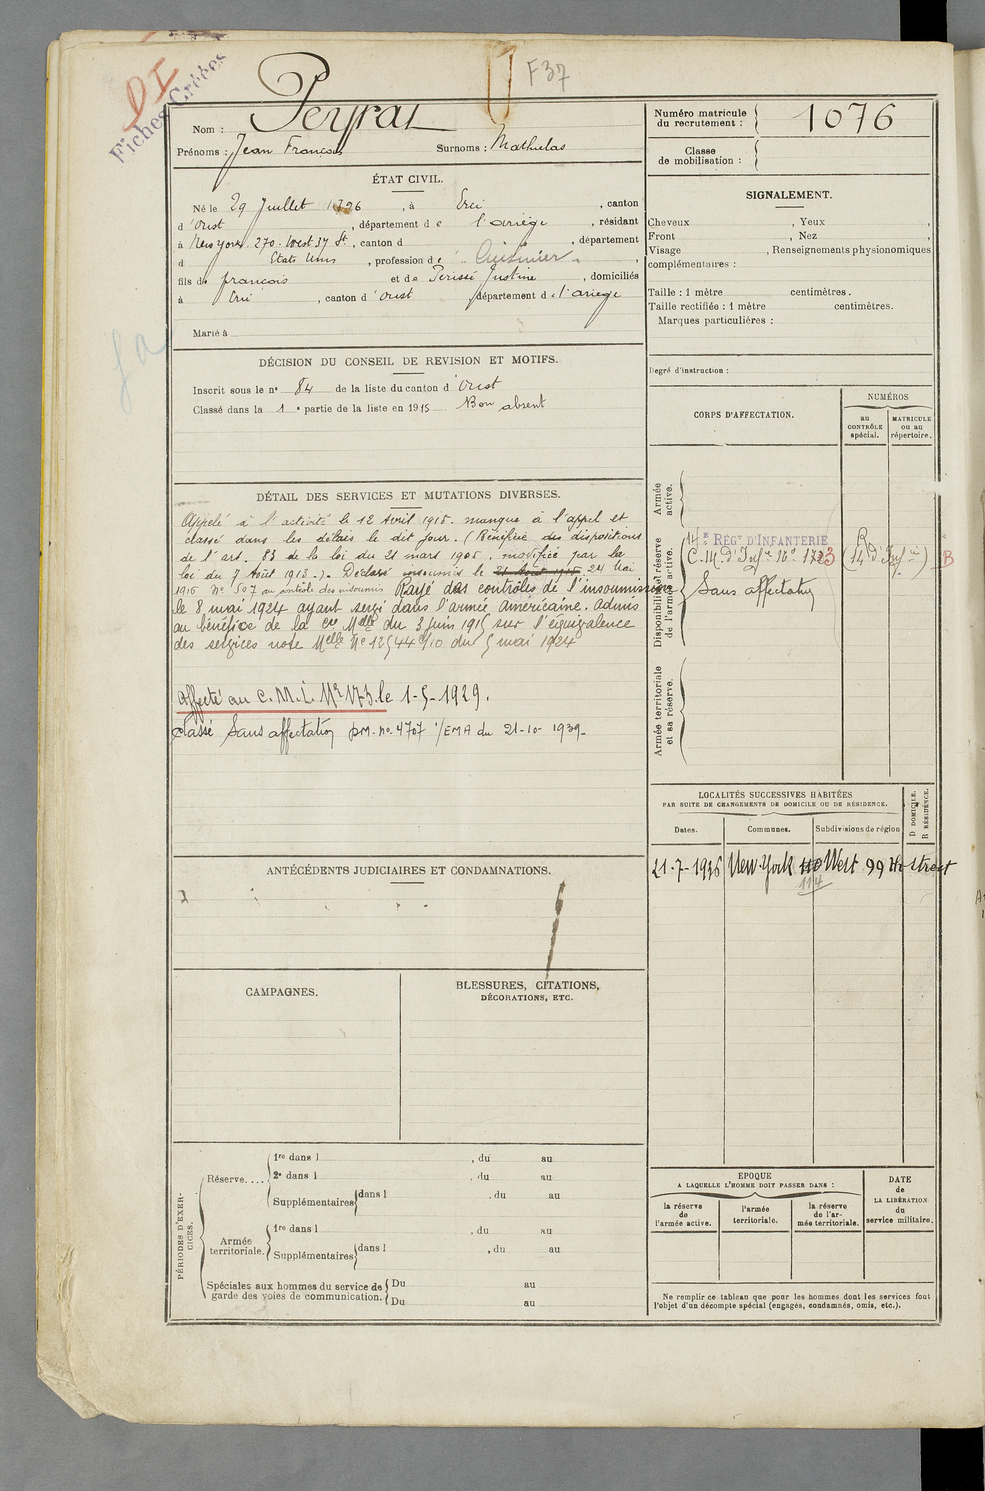 DI
Fiches Créées
F 37
Nom : Peyrat
Prénoms : Jean François Surnoms : Mathulas
Numéro matricule du recrutement : 1076
Classe de mobilisation :
ÉTAT CIVIL.
Né le 29 Juillet 1896, à Ercé, canton
d'Oust, département de l'ariège, résidant
à New york. 270. West 37 St., canton d , département
d Etats Unis, profession de Cuisinier,
fils de françois et de Perissé Justine, domiciliés
à Ercé, canton d'Oust, département de l'ariege
Marié à
SIGNALEMENT.
Cheveux , Yeux ,
Front , Nez ,
Visage , Renseignements physionomiques
complémentaires :
Taille : 1 mètre centimètres.
Taille rectifiée : 1 mètre centimètres.
Marques particulières :
Degré d'instruction :
DÉCISION DU CONSEIL DE REVISION ET MOTIFS.
Inscrit sous le n° 84 de la liste du canton d'Oust
Classé dans la 1e partie de la liste en 1915 Bon absent
DÉTAIL DES SERVICES ET MUTATIONS DIVERSES.
Appelé à l'activité le 12 Avril 1915. manque à l'appel et
classé dans les délais le dit jour. (Bénéficié des dispositions
de l'art. 83 de la loi du 21 mars 1905, modifié par la
loi du 7 Août 1913.). Déclaré insoumis le 21 Août 1915 24 Mai
1916 N° 507 au contrôle des insoumis Rayé des contrôles de l'insoumission
le 8 mai 1924 ayant servi dans l'armée américaine. Admis
au bénéfice de la cre Melle du 3 Juin 1919 sur l'équivalence
des services note Melle N° 12544 3/10 du 5 mai 1924
Affecté au C.M.I. N° 173 le 1-5-1929.
Classé Sans affectation DM. no 4707 1/EMA du 21-10-1939.
CORPS D'AFFECTATION.
NUMÉROS
au CONTRÔLE spécial.
MATRICULE ou au répertoire.
Armée active.
Disponibilité et réserve de l'armée active.
14e RÉGT D'INFANTERIE
C.M. d'Infie N° 173
(14 d'Infie) B
Sans affectation
Armée territoriale et sa réserve.
LOCALITÉS SUCCESSIVES HABITÉES
PAR SUITE DE CHANGEMENTS DE DOMICILE OU DE RÉSIDENCE.
Dates.
Communes.
Subdivisions de région
D DOMICILE.
R RÉSIDENCE.
21-7-1926 New-York 110 West 99 th street
114
ANTÉCÉDENTS JUDICIAIRES ET CONDAMNATIONS.
CAMPAGNES.
BLESSURES, CITATIONS,
DÉCORATIONS, ETC.
PÉRIODES D'EXERCICES.
Réserve....
1re dans l , du au
2e dans l , du au
Supplémentaires dans l , du au
Armée territoriale.
1re dans l , du au
Supplémentaires dans l , du au
Spéciales aux hommes du service de
garde des voies de communication.
Du au
Du au
EPOQUE
A LAQUELLE L'HOMME DOIT PASSER DANS :
la réserve de l'armée active.
l'armée territoriale.
la réserve de l'armée territoriale.
DATE de LA LIBÉRATION du service militaire.
Ne remplir ce tableau que pour les hommes dont les services font
l'objet d'un décompte spécial (engagés, condamnés, omis, etc.).